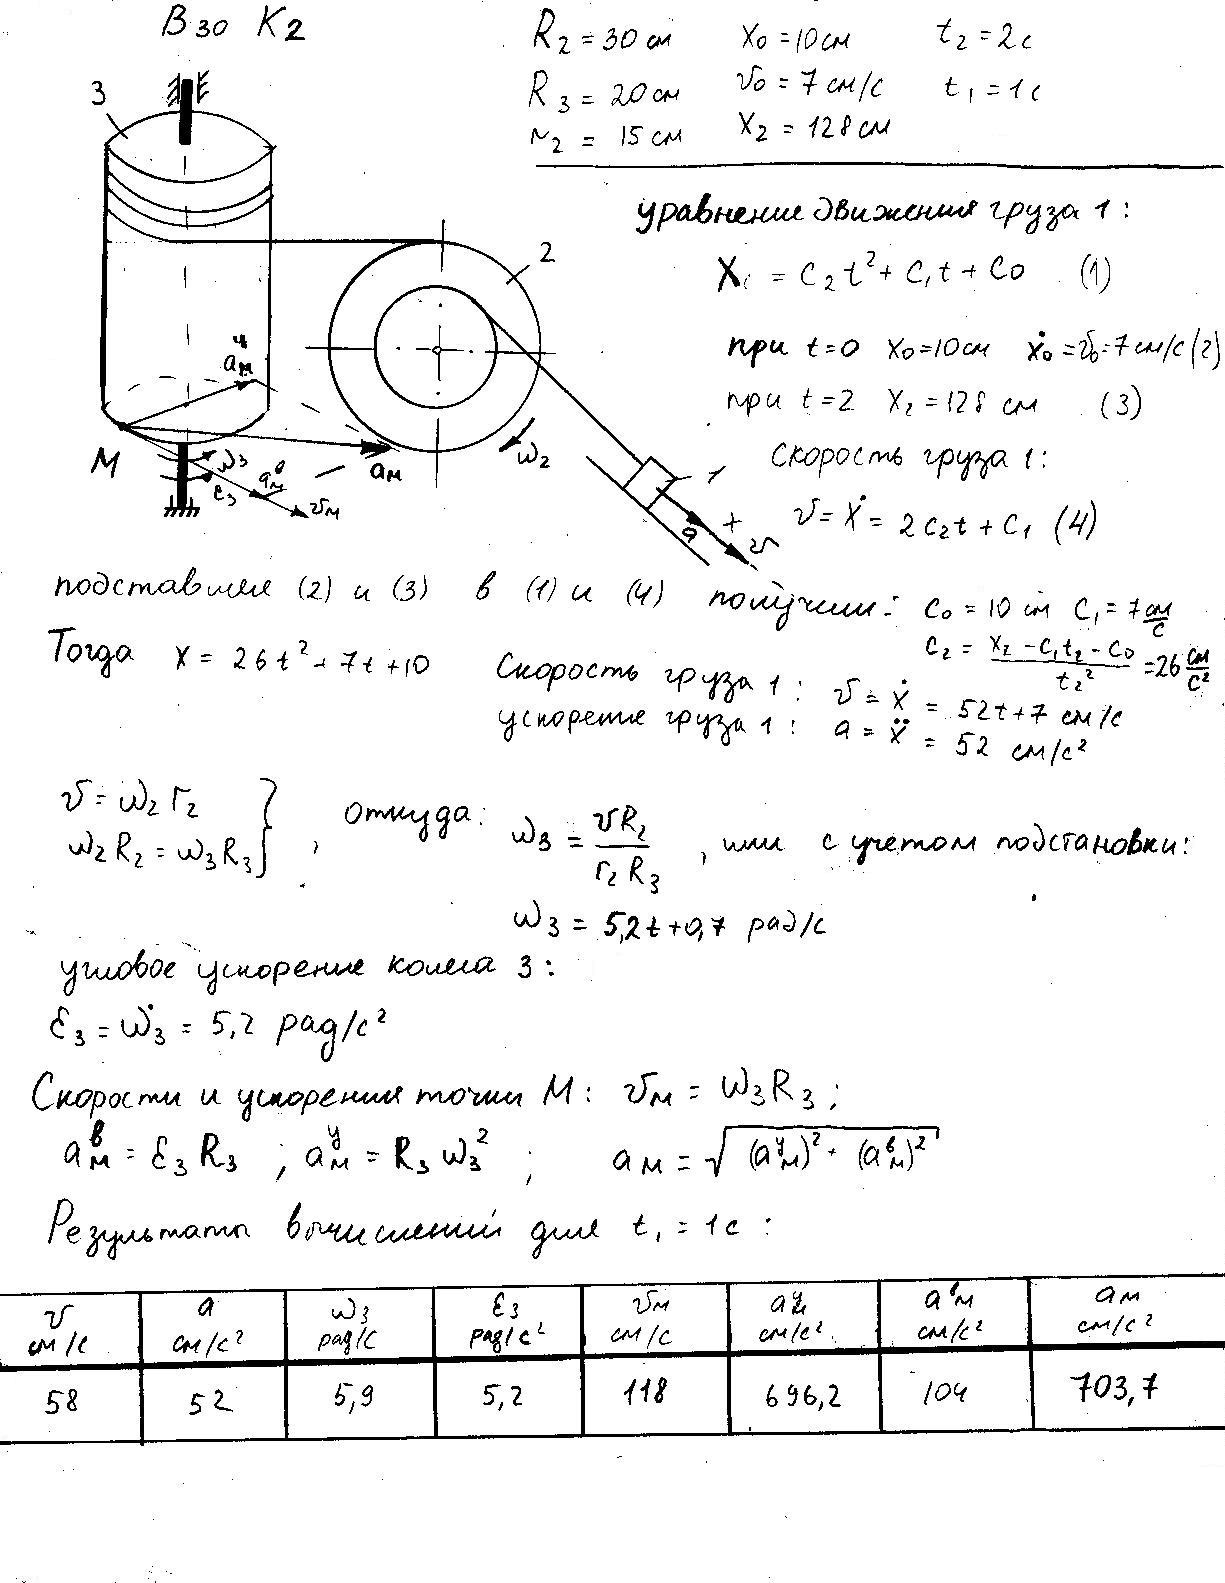 В 30 К2
R₂ = 30 см   x₀ = 10 см   t₂ = 2 с
R₃ = 20 см   v₀ = 7 см/с   t₁ = 1 с
r₂ = 15 см   x₂ = 128 см
3
2
уравнение движения груза 1:
x₁ = C₂t² + C₁t + C₀   (1)
при t=0   x₀=10см   ẋ₀=v₀=7см/с (2)
при t=2   x₂=128 см   (3)
a_M^ц
M
ω₃
ε₃
a_M^в
v_M
a_M
ω₂
1
a
+
v
Скорость груза 1:
v = ẋ = 2C₂t + C₁ (4)
подставляя (2) и (3) в (1) и (4) получим: C₀ = 10 см   C₁ = 7 см/с
C₂ = (x₂ - C₁t₂ - C₀)/t₂² = 26 см/с²
Тогда x = 26t² + 7t + 10   Скорость груза 1: v = ẋ = 52t+7 см/с
ускорение груза 1: a = ẍ = 52 см/с²
v = ω₂ r₂
ω₂R₂ = ω₃R₃ } , откуда: ω₃ = vR₂/(r₂R₃) , или с учетом подстановки:
ω₃ = 5,2t+0,7 рад/с
угловое ускорение колеса 3:
ε₃ = ω̇₃ = 5,2 рад/с²
Скорости и ускорения точки М: v_M = ω₃R₃;
a_M^в = ε₃R₃ ; a_M^ц = R₃ω₃² ; a_M = √((a_M^ц)² + (a_M^в)²)
Результаты вычислений для t₁ = 1с:
v   a   ω₃   ε₃   v_M   a_M^ц   a_M^в   a_M
см/с   см/с²   рад/с   рад/с²   см/с   см/с²   см/с²   см/с²
58   52   5,9   5,2   118   696,2   104   703,7